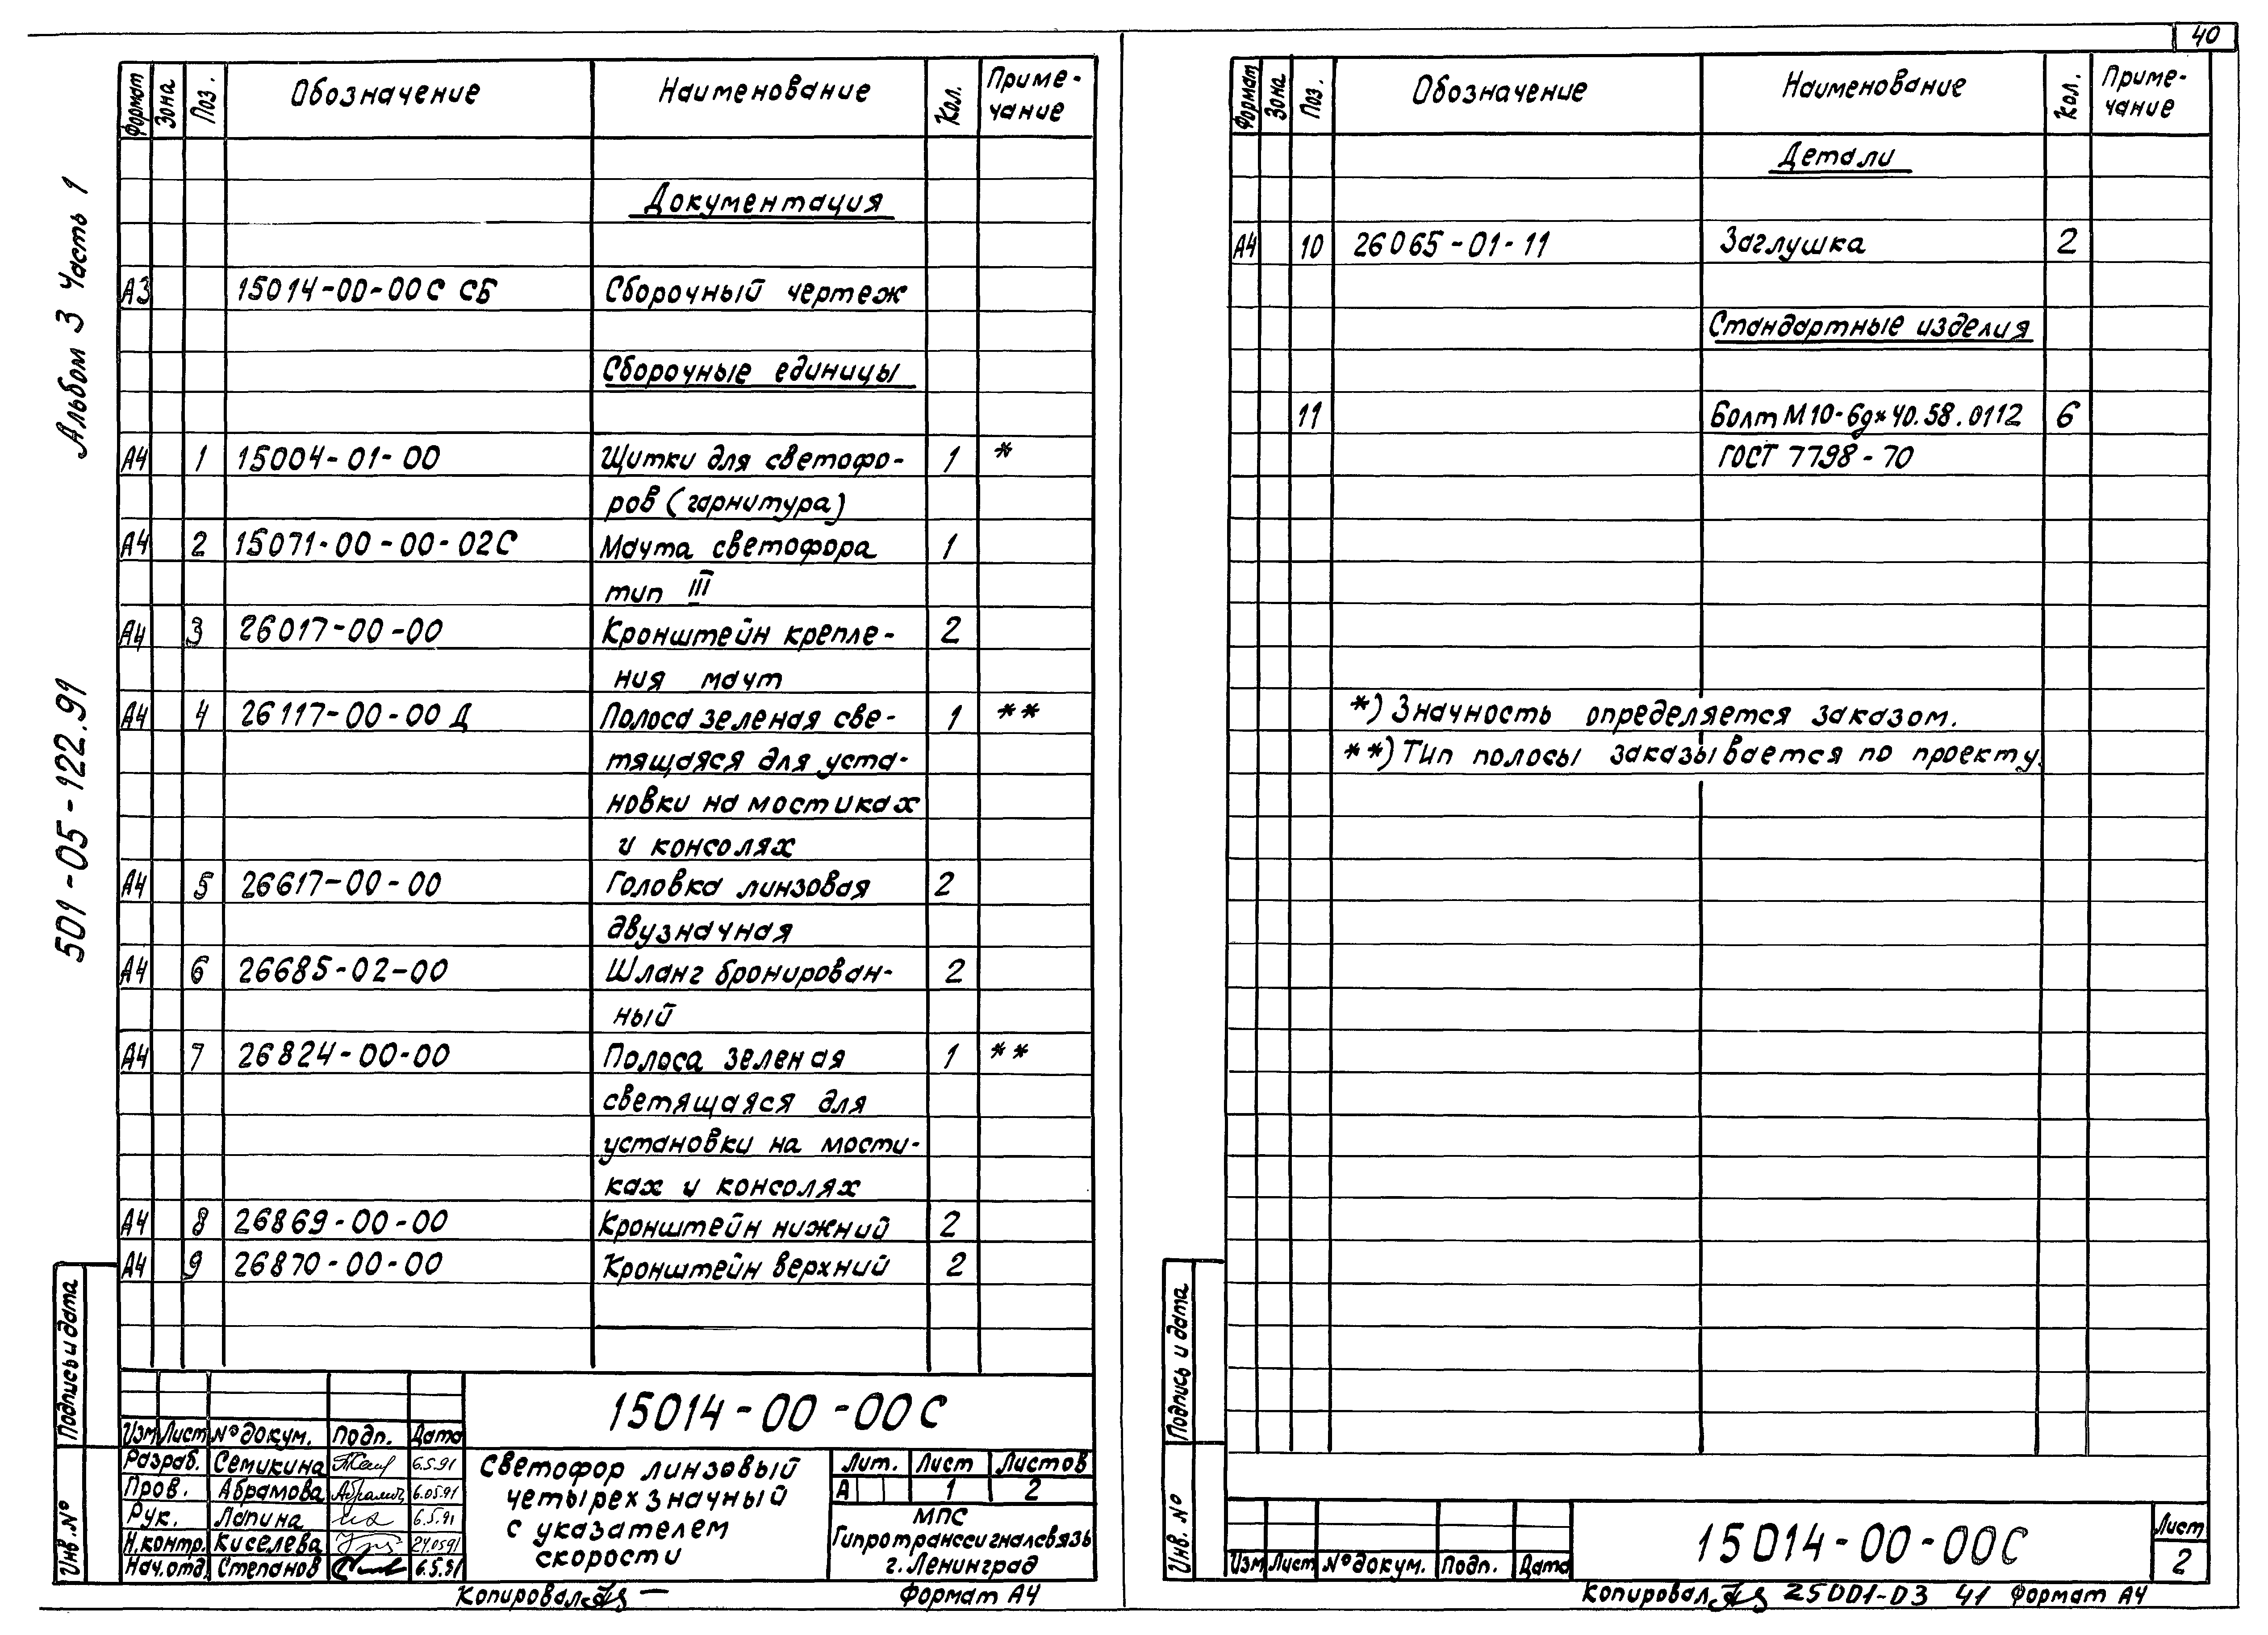 40
Альбом 3 Часть 1
501-05-122.91
Формат Зона Поз. Обозначение Наименование Кол. Приме-
чание
Документация
А3 15014-00-00С СБ Сборочный чертеж
Сборочные единицы
А4 1 15004-01-00 Щитки для светофо- 1 *
ров (гарнитура)
А4 2 15071-00-00-02С Мачта светофора 1
тип III
А4 3 26017-00-00 Кронштейн крепле- 2
ния мачт
А4 4 26117-00-00 Д Полоса зеленая све- 1 **
тящаяся для уста-
новки на мостиках
и консолях
А4 5 26617-00-00 Головка линзовая 2
двузначная
А4 6 26685-02-00 Шланг бронирован- 2
ный
А4 7 26824-00-00 Полоса зеленая 1 **
светящаяся для
установки на мости-
ках и консолях
А4 8 26869-00-00 Кронштейн нижний 2
А4 9 26870-00-00 Кронштейн верхний 2
Подпись и дата
Инв. №
15014-00-00С
Изм Лист № докум. Подп. Дата
Разраб. Семикина 6.5.91
Пров. Абрамова 6.05.91
Рук. Лапина 6.5.91
Н.контр. Киселева 24.05.91
Нач.отд. Степанов 6.5.91
Светофор линзовый
четырехзначный
с указателем
скорости
Лит. Лист Листов
А 1 2
МПС
Гипротранссигналсвязь
г. Ленинград
Копировал
Формат А4
Формат Зона Поз. Обозначение Наименование Кол. Приме-
чание
Детали
А4 10 26065-01-11 Заглушка 2
Стандартные изделия
11 Болт М10-6gх40.58.0112 6
ГОСТ 7798-70
*) Значность определяется заказом.
**) Тип полосы заказывается по проекту.
Подпись и дата
Инв. №
Изм Лист № докум. Подп. Дата
15014-00-00С
Лист
2
Копировал 25001-03 41 Формат А4